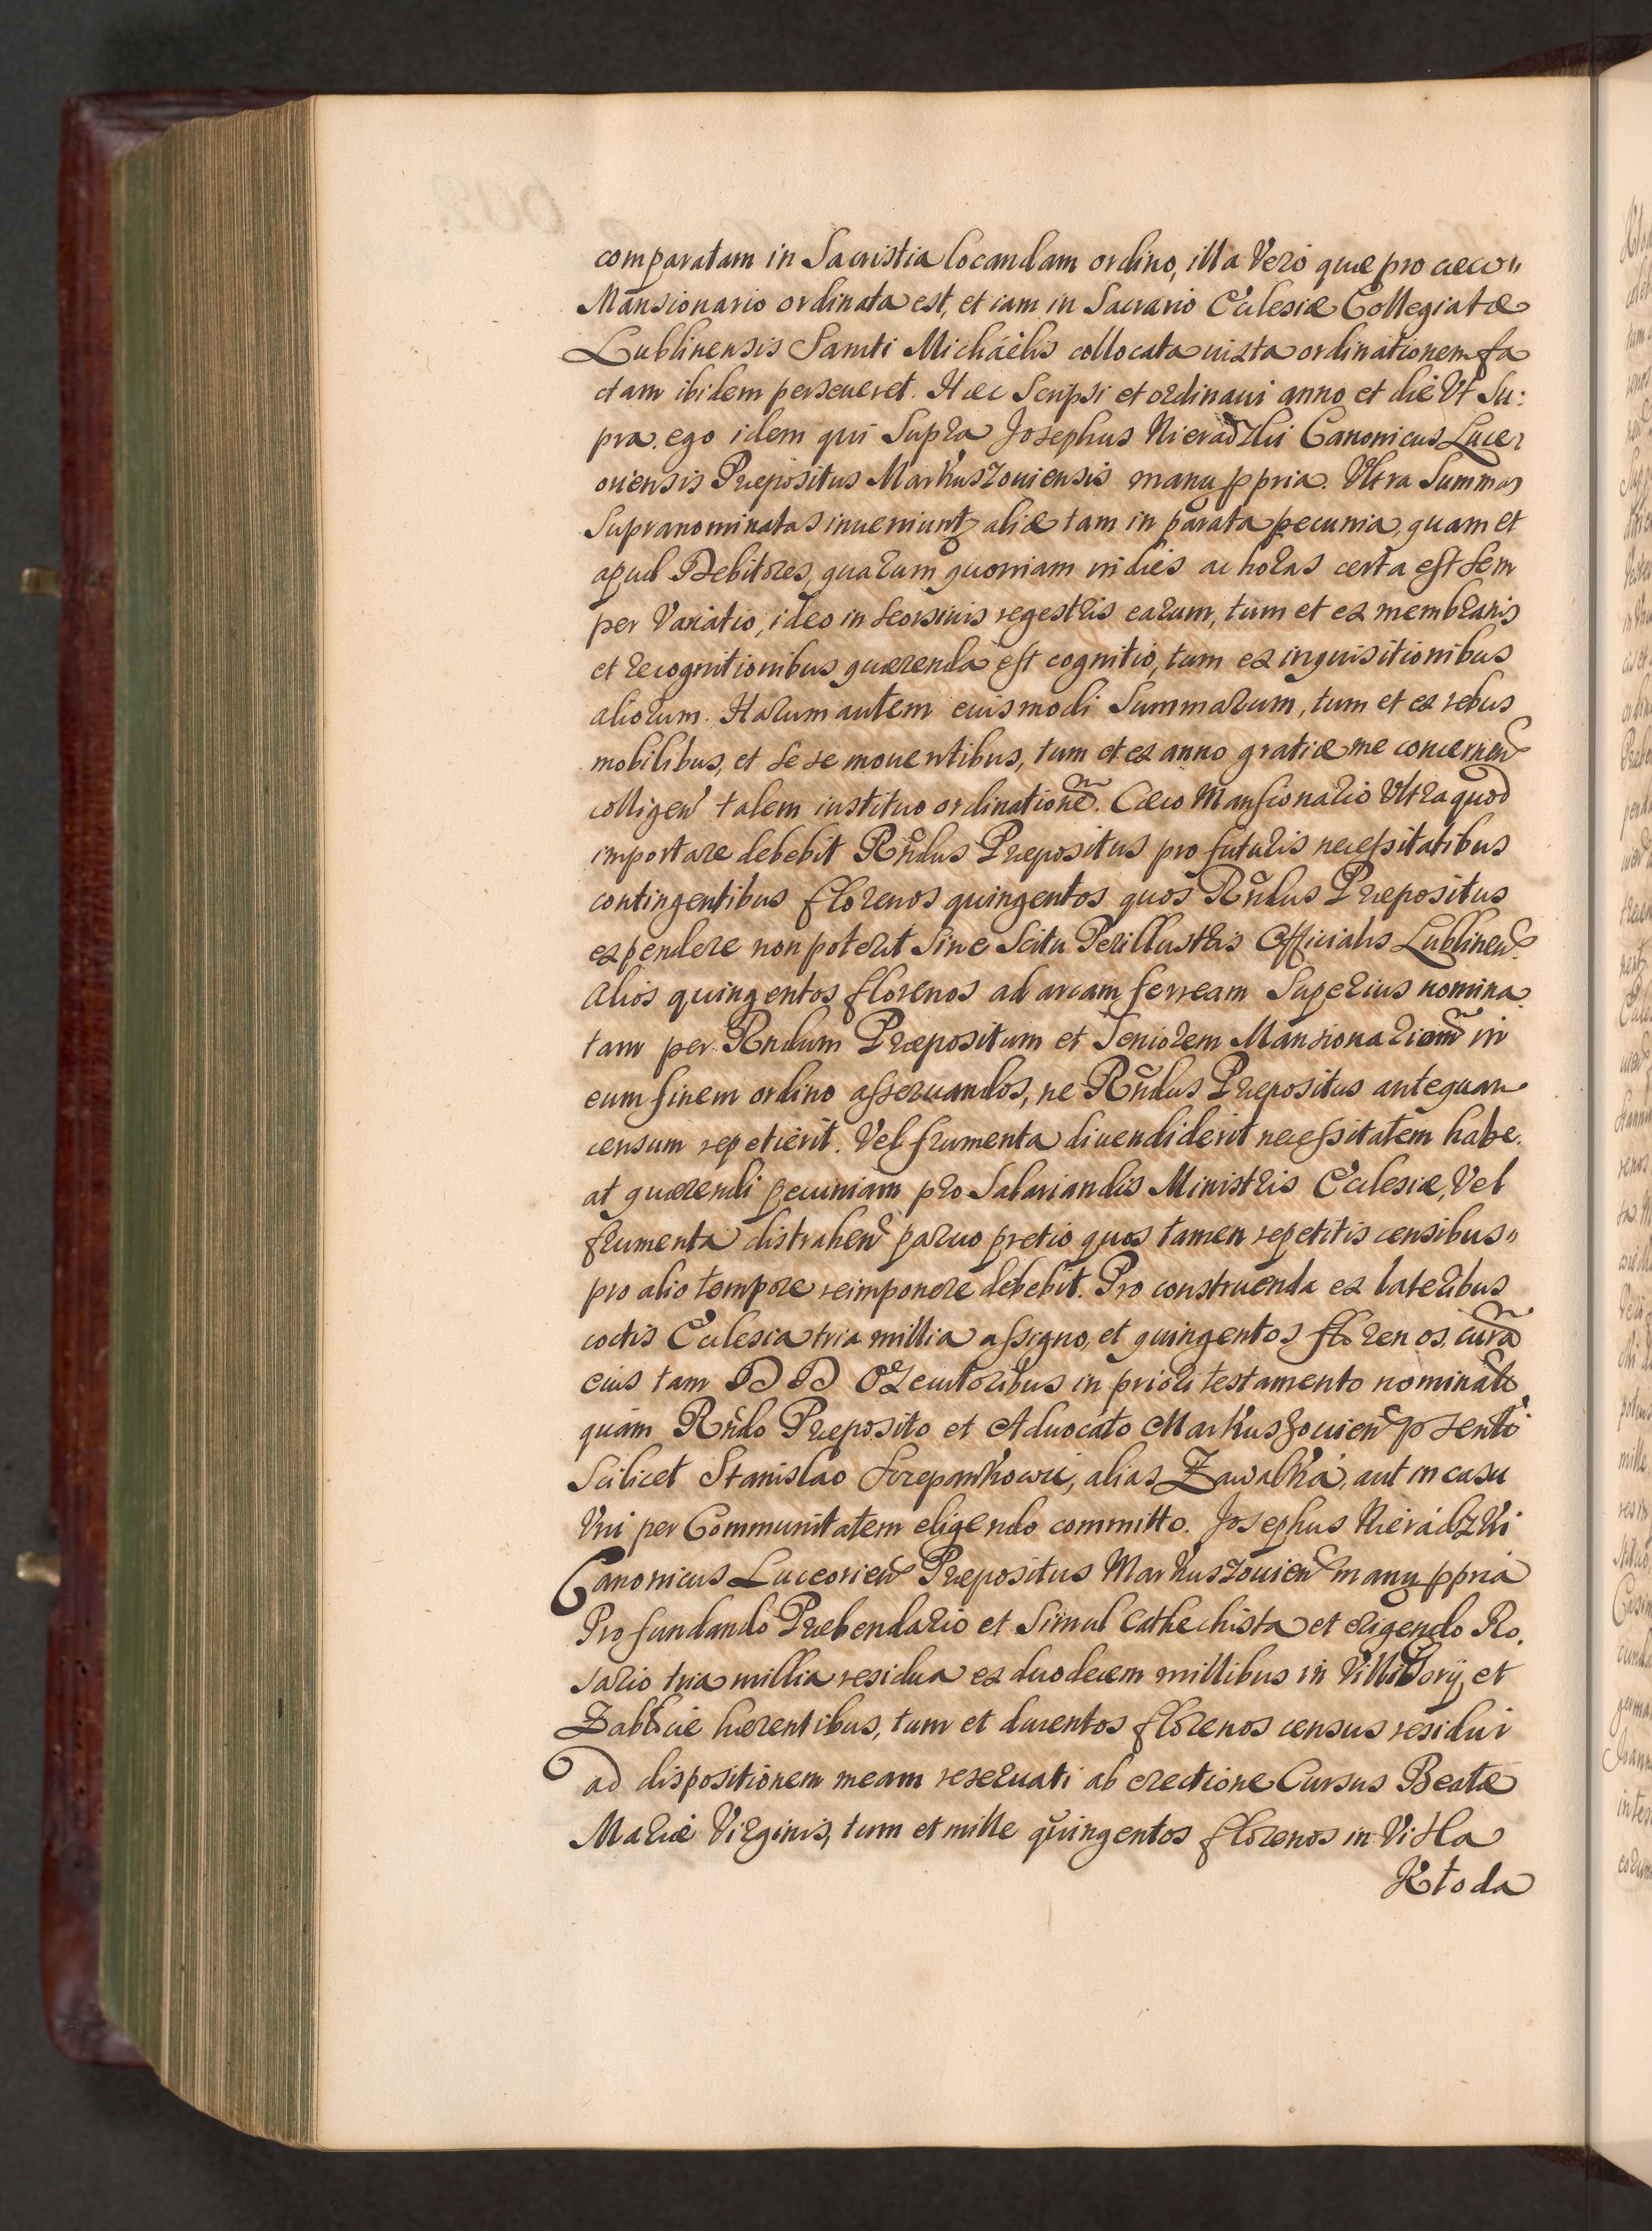 comparatam in Sacristia locandam ordino, illa Vero quæ pro cæco„
Mansionario ordinata est, et iam in Sacrario Ecclesiæ Collegiatæ
Lublinensis Sancti Michaëlis collocata iuxta ordinationem fa
ctam ibidem perseueret. Hæc Scripsi et ordinaui anno et die Vt Su:
pra. ego idem qui Supra Josephus Nieradzki Canonicus Luce,
oriensis Præpositus Markuszouiensis manu ppria. Vltra Summas
Supranominatas inueniuntz aliæ tam in parata pecunia, quam et
apud Debitores, quarum quoniam in dies ac horas certa est sem
per Variatio, ideo in seorsiuis regestris earum, tum et ex membranis
et recognitionibus quærenda est cognitio, tum ex inquisitionibus
aliorum. Harum autem euismodi Summarum, tum et ex rebus
mobilibus, et se se mouentibus, tum et ex anno gratiæ me concernen
colligen talem instituo ordinatione. Cæco Mansionario Vltra quod
importare debebit Rndus Præpositus pro futuris necessitatibus
contingentibus florenos quingentos quos Rndus Præpositus
expendere non poterit Sine Scitu Perillustris Officialis Lublinen.
Alios quingentos florenos ad arcam ferream Superius nomina
tam per Rndum Præpositum et Seniorem Mansionariom in
eum finem ordino asseruandos, ne Rndus Præpositus antequam
censum repetierit. Vel frumenta diuendiderit necessitatem habe.
at quærendi pecuniam pro Salariandis Ministris Ecclesiæ, Vel
frumenta distrahen paruo pretio quos tamen repetitis censibus„
pro alio tempore reimponere debebit. Pro construenda ex lateribus
coctis Ecclesia tria millia assigno, et quingentos florenos, cura
eius tam D D Exeuctoribus in priori testamento nominat
quam Rndo Præposito et Aduocato Markuszouien psenti
Scilicet Stanislao Szczepankowic, alias Zawalka, aut in casu
Vni per Communitatem eligendo committo. Josephus Nieradzki
Canonicus Luceorien Præpositus Markuszouien manu ppria
Pro fundando Præbendario et Simul Cathechista et erigendo Ro,
sario tria millia residua ex duodecem millibus in Villi Bory, et
Zabłocie hærentibus, tum et ducentos florenos census residui
ad dispositionem meam reseruati ab erectione Cursus Beatæ
Mariæ Virginis, tum et mille quingentos florenos in Villa
Kłoda